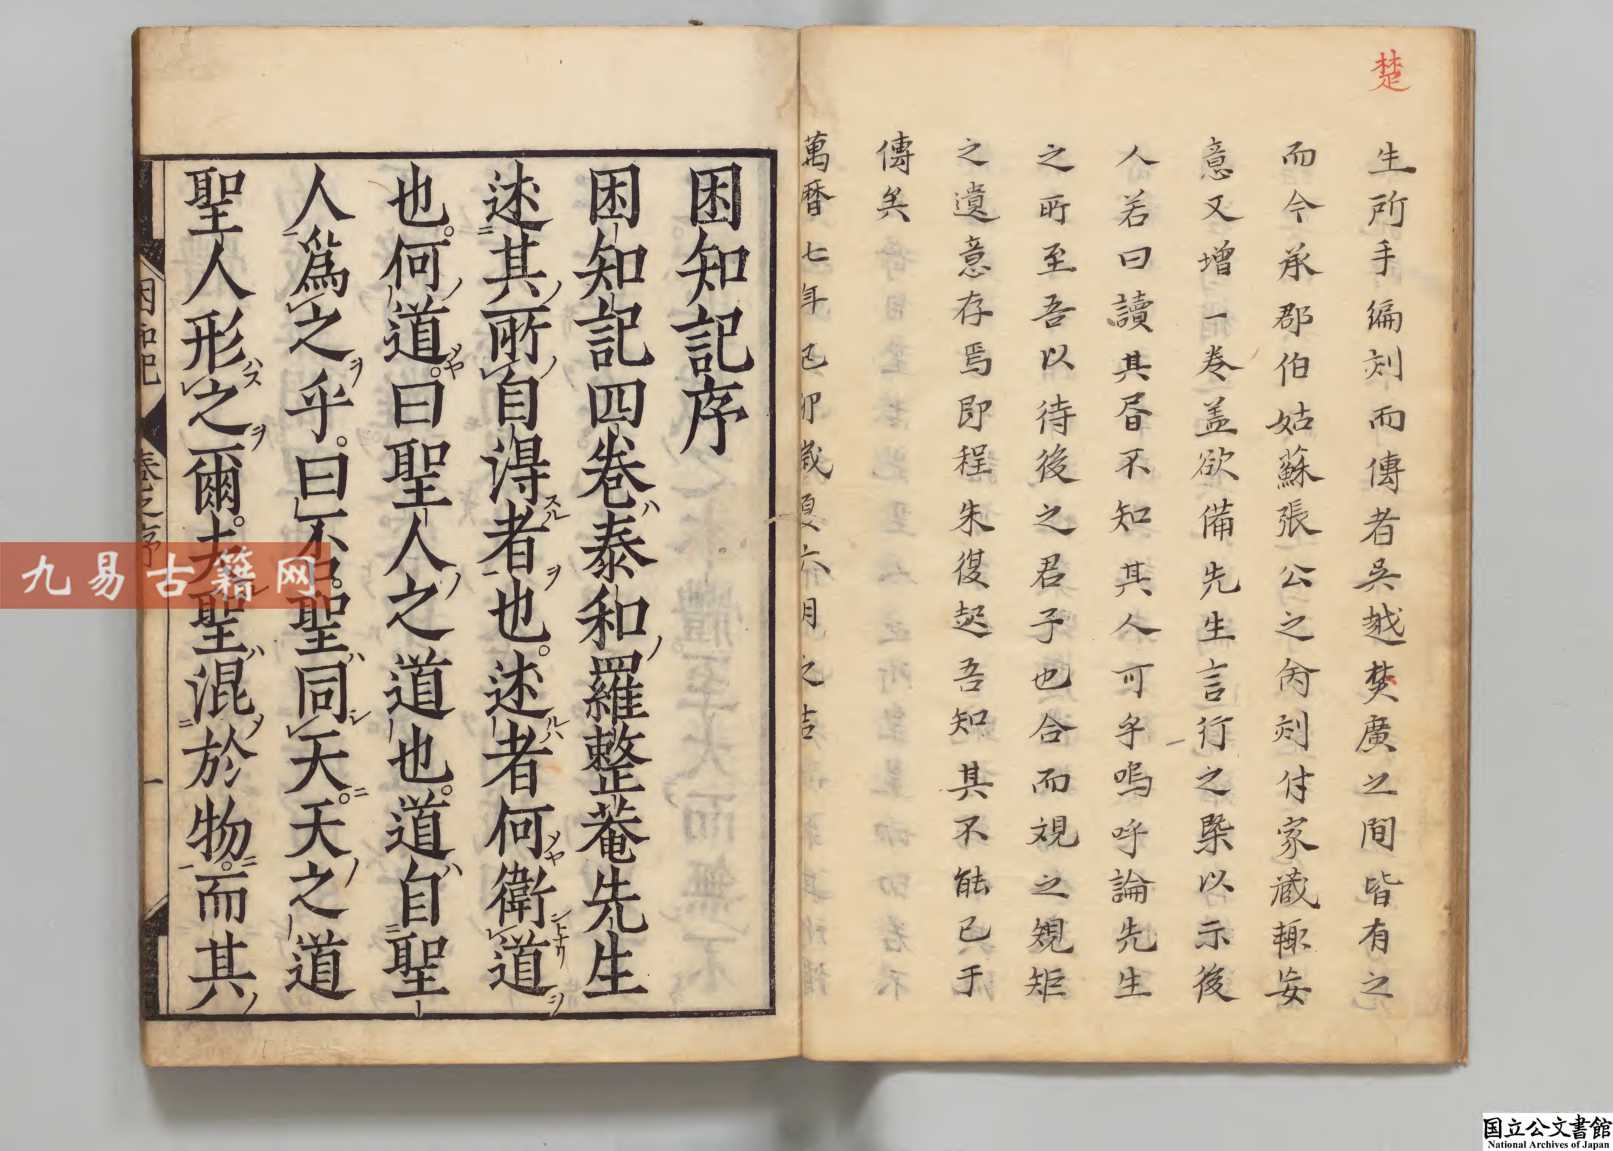 楚
生所手編刻而傳者吳越楚廣之間皆有之
而今承郡伯姑蘇張公之為刻付家藏輒妄
意又增一卷盖欲備先生言行之槩以示後
人若曰讀其書不知其人可乎嗚呼論先生
之所至吾以待後之君子也合而規之規矩
之遺意存焉即程朱復起吾知其不能已于
傳矣
萬曆七年己卯歲夏六月之吉
困知記序
困知記四卷ハ泰和ノ羅整菴先生
述其所自淂者也。述者何衛道
也。何道。曰聖人之道也。道自聖
人爲之乎。曰不。聖同天。天之道
聖人形之爾。夫聖混於物。而其
困知記
卷之序
一
九易古籍网
国立公文書館
National Archives of Japan